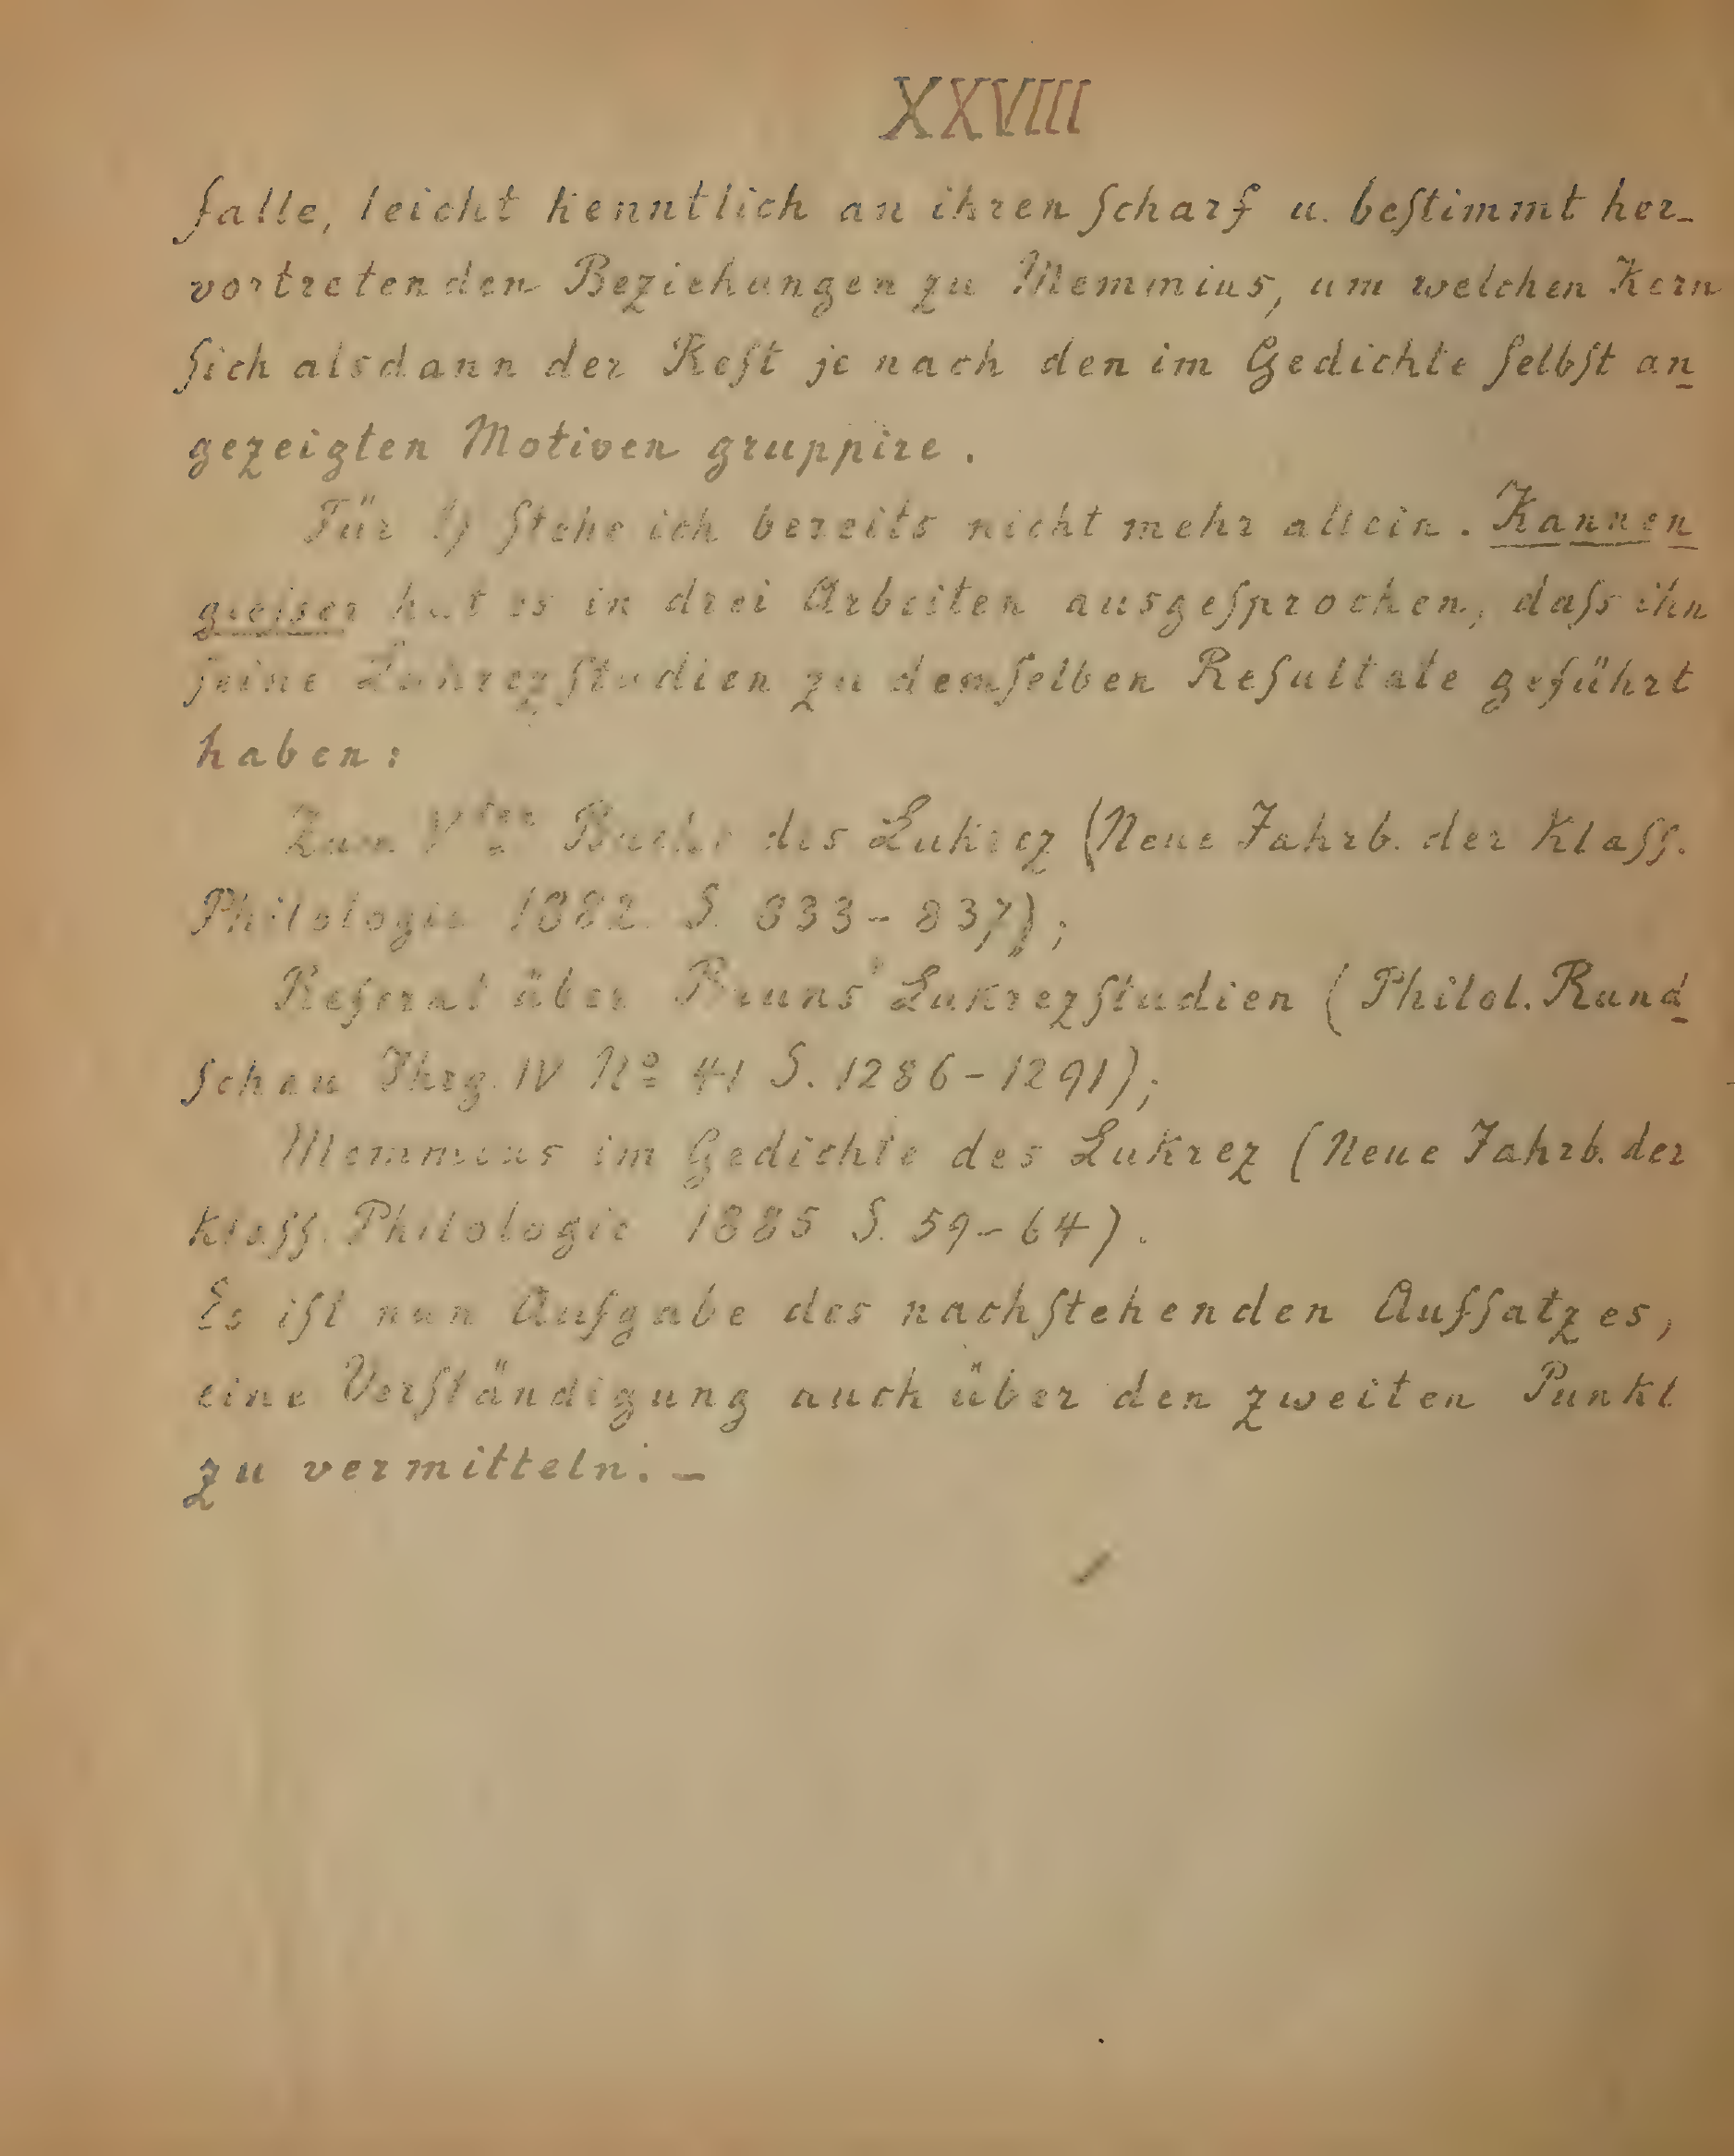 XXVIII
falle, leicht kenntlich an ihren ſcharf u. beſtimmt her-
vortretenden Beziehungen zu Memmius, um welchen Kern
ſich alsdann der Reſt je nach den im Gedichte ſelbſt an
gezeigten Motiven gruppire.
Für 1) ſtehe ich bereits nicht mehr allein. Kannen
gieſser hat es in drei Arbeiten ausgeſprochen, daſs ihn
ſeine Lukrezſtudien zu demſelben Reſultate geführt
haben:
Zum Vten Buche des Lukrez (Neue Jahrb. der klaſſ.
Philologie 1882 S. 833-837);
Referat über Bruns' Lukrezſtudien (Philol. Rund
ſchau Jhrg. IV No 41 S. 1286-1291);
Memmius im Gedichte des Lukrez (Neue Jahrb. der
klaſſ. Philologie 1885 S. 59-64).
Es iſt nun Aufgabe des nachſtehenden Aufſatzes,
eine Verſtändigung auch über den zweiten Punkt
zu vermitteln. -